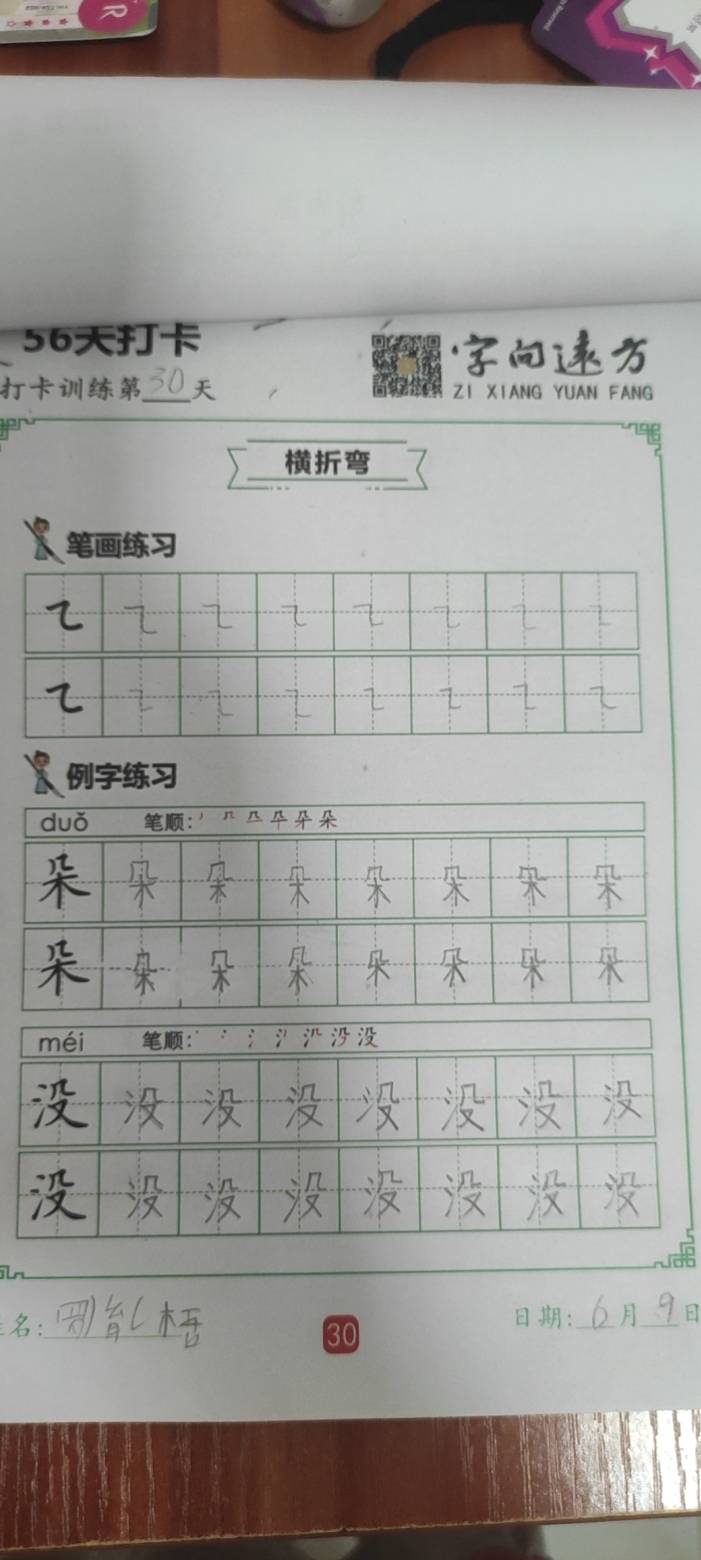 56天打卡
打卡训练第30天
字向远方
ZI XIANG YUAN FANG
横折弯
笔画练习
例字练习
duǒ 笔顺:
朵 朵 朵 朵 朵 朵 朵 朵
朵 朵 朵 朵 朵 朵 朵 朵
méi 笔顺:
没 没 没 没 没 没 没 没
没 没 没 没 没 没 没 没
名:
30
日期: 6月9日